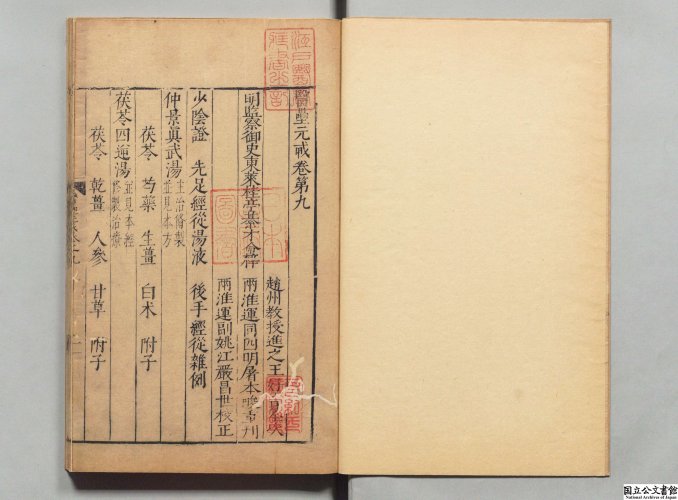 醫壘元戎卷第九
趙州教授進之王好古
明監察御史東萊桂亭
兩淮運同四明屠本畯重刊
兩淮運副姚江嚴昌世校正
少陰證 先足經從湯液 後手經從雜例
仲景真武湯 主治脩製並見本方
茯苓 芍藥 生薑 白术 附子
茯苓四逆湯 並見本經脩製治療
茯苓 乾薑 人參 甘草 附子
日本
圖書
国立公文書館
National Archives of Japan